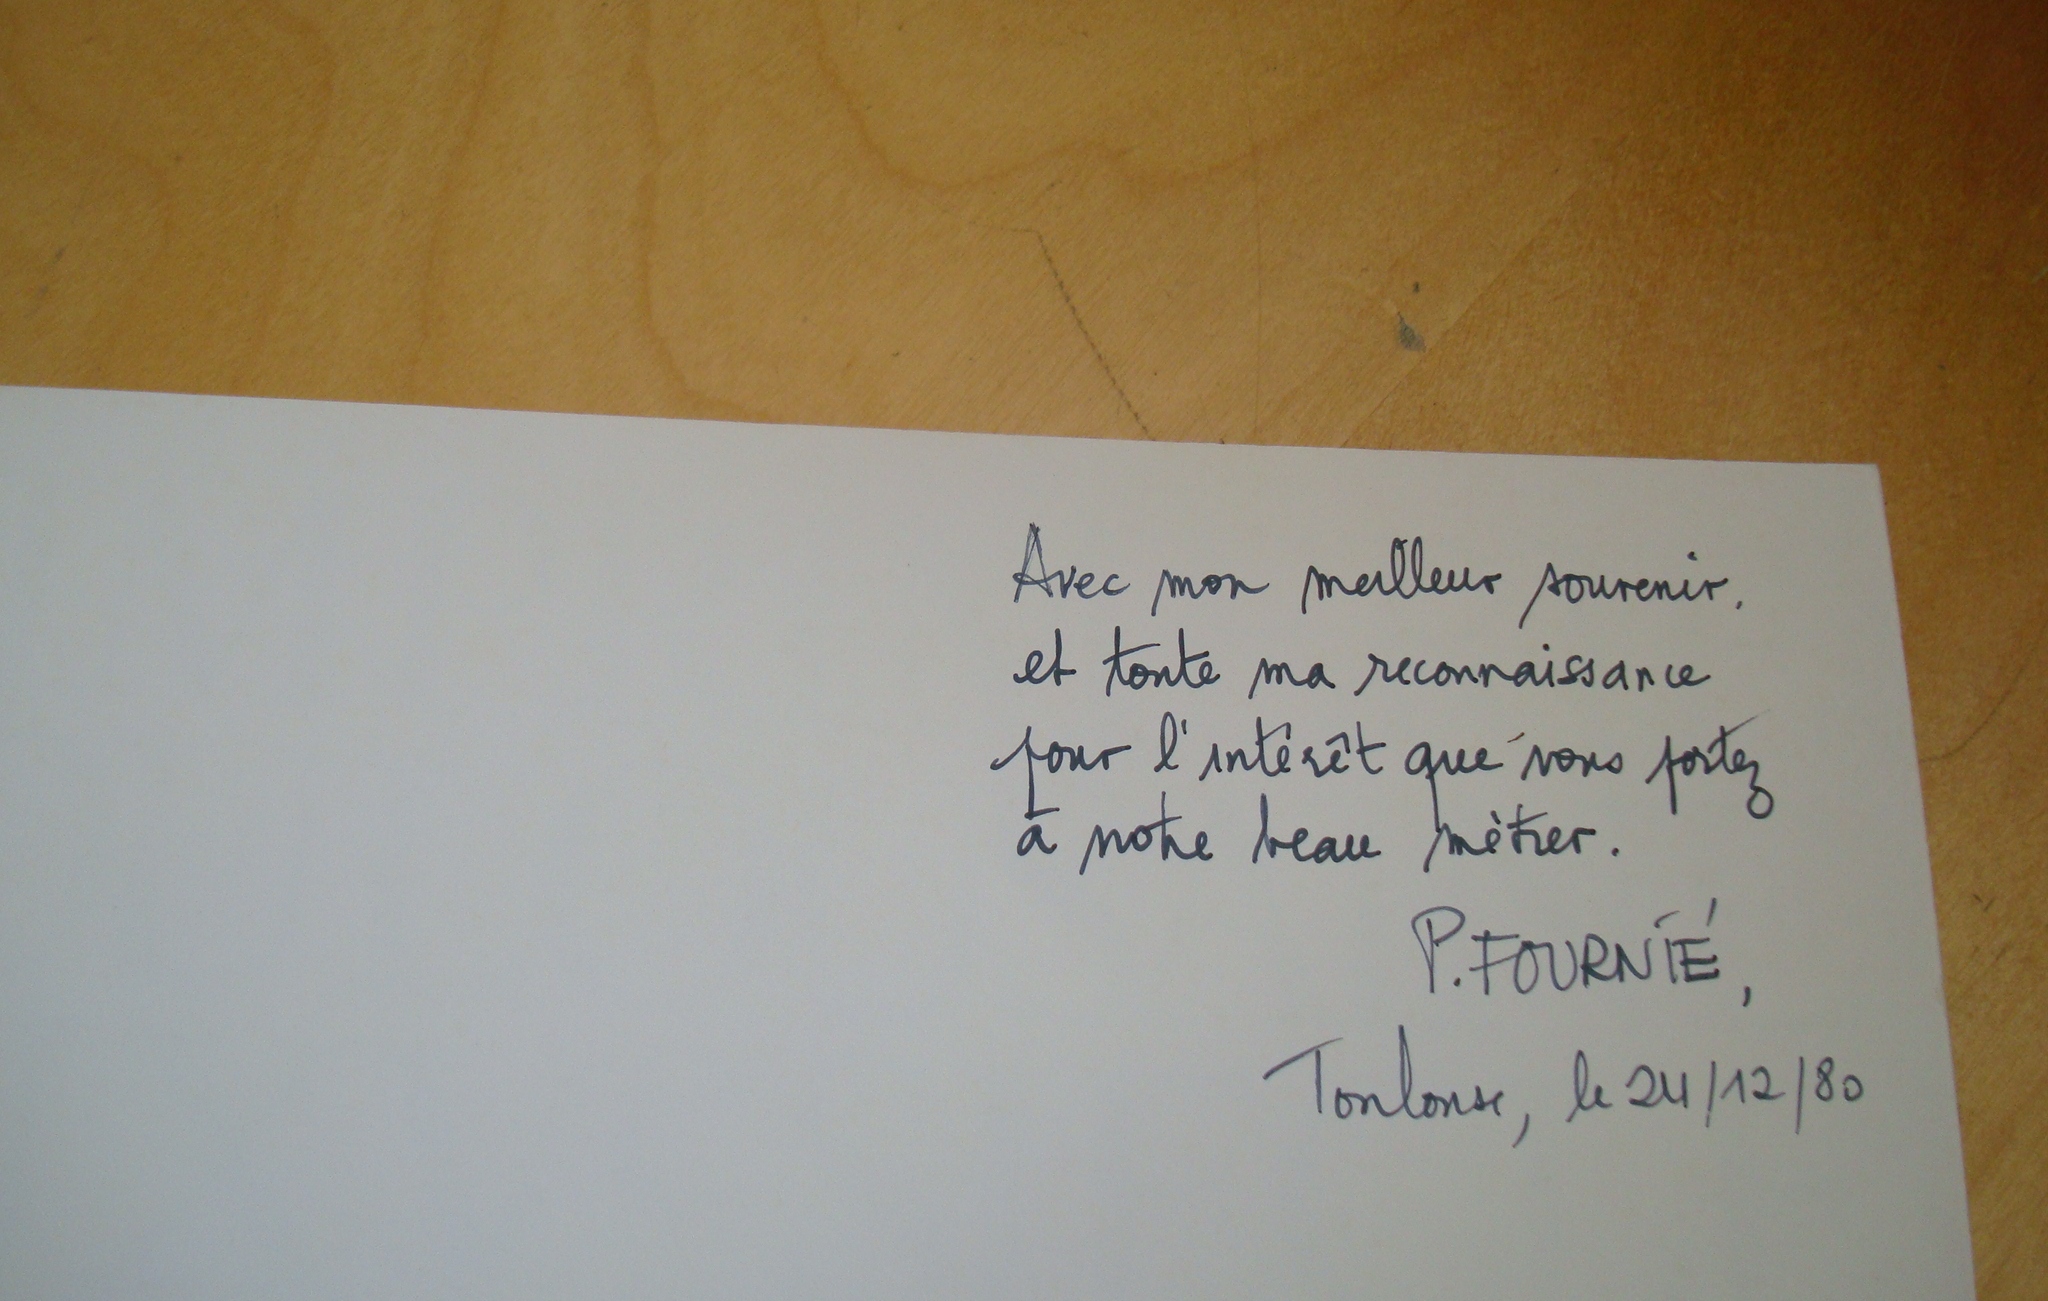 Avec mon meilleur souvenir,
et toute ma reconnaissance
pour l'intérêt que vous portez
à notre beau métier.
P. FOURNIÉ,
Toulouse, le 24/12/80